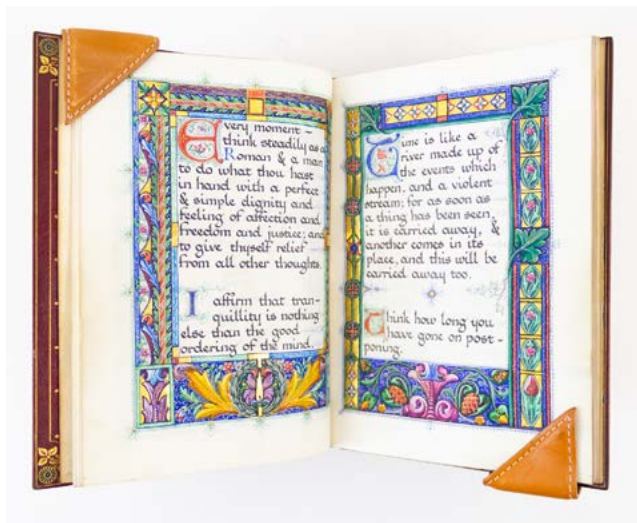 Every moment -
think steadily as a
Roman & a man
to do what thou hast
in hand with a perfect
& simple dignity and
feeling of affection and
freedom and justice; and
to give thyself relief
from all other thoughts.
I affirm that tran-
quillity is nothing
else than the good
ordering of the mind.
Time is like a
river made up of
the events which
happen, and a violent
stream; for as soon as
a thing has been seen,
it is carried away, &
another comes in its
place, and this will be
carried away too.
Think how long you
have gone on post-
poning.